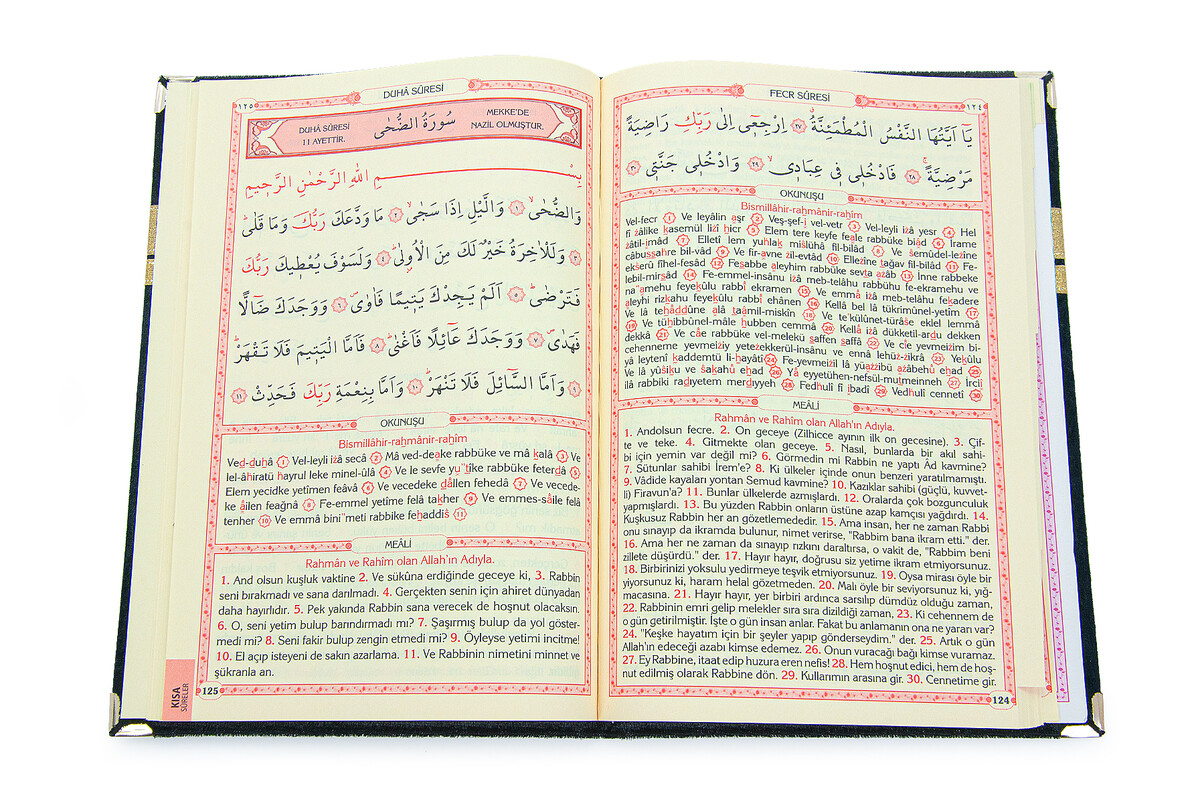 FECR SÛRESİ
١٢٤
يَا اَيَّتُهَا النَّفْسُ الْمُطْمَئِنَّةُۗ ٢٧ اِرْجِعٖٓى اِلٰى رَبِّكِ رَاضِيَةً
مَرْضِيَّةًۚ ٢٨ فَادْخُلٖى فٖى عِبَادٖىۙ ٢٩ وَادْخُلٖى جَنَّتٖى ٣٠
OKUNUŞU
Bismillâhir-raḥmânir-raḥîm
Vel-fecr 1 Ve leyâlin aşr 2 Veş-şef-i vel-vetr 3 Vel-leyli iżâ yesr 4 Hel
fî żâlike kasemül liżî hicr 5 Elem tere keyfe feale rabbüke biâd 6 İrame
żâtil-imâd 7 Elletî lem yuhlak miślühâ fil-bilâd 8 Ve śemûdel-lezîne
câbussahre bil-vâd 9 Ve fir-avne żil-evtâd 10 Ellezîne tağav fil-bilâd 11 Fe-
ekśerû fîhel-fesâd 12 Feṣabbe aleyhim rabbüke sevta ażâb 13 İnne rabbeke
lebil-mirṣâd 14 Fe-emmel-insânu iżâ meb-telâhu rabbühu fe-ekramehu ve
na"amehu feyekûlu rabbî ekramen 15 Ve emmâ iżâ meb-telâhu fekadere
aleyhi rizkahu feyekûlu rabbî ehânen 16 Kellâ bel lâ tükrimûnel-yetîm 17
Ve lâ tehâddûne alâ taâmil-miskîn 18 Ve te'külûnet-türâśe eklel lemmâ
19 Ve tühibbûnel-mâle hubben cemmâ 20 Kellâ iżâ dükketil-ardu dekken
dekkâ 21 Ve câe rabbüke vel-melekü saffen saffâ 22 Ve cîe yevmeiżim bi-
cehenneme yevmeiżiy yeteżekkerül-insânu ve ennâ lehüż-żikrâ 23 Yekûlu
yâ leytenî kaddemtü li-hayâtî 24 Fe-yevmeiżil lâ yüażżibü ażâbehû ehad 25
Ve lâ yûśiku ve śakahû ehad 26 Yâ eyyetühen-nefsül-mutmeinneh 27 İrciî
ilâ rabbiki radıyetem merdıyyeh 28 Fedhulî fî ibadî 29 Vedhulî cennetî 30
MEÂLİ
Rahmân ve Rahîm olan Allah'ın Adıyla.
1. Andolsun fecre. 2. On geceye (Zilhicce ayının ilk on gecesine). 3. Çif-
te ve teke. 4. Gitmekte olan geceye. 5. Nasıl, bunlarda bir akıl sahi-
bi için yemin var değil mi? 6. Görmedin mi Rabbin ne yaptı Âd kavmine?
7. Sütunlar sahibi İrem'e? 8. Ki ülkeler içinde onun benzeri yaratılmamıştı.
9. Vâdide kayaları yontan Semud kavmine? 10. Kazıklar sahibi (güçlü, kuvvet-
li) Firavun'a? 11. Bunlar ülkelerde azmışlardı. 12. Oralarda çok bozgunculuk
yapmışlardı. 13. Bu yüzden Rabbin onların üstüne azap kamçısı yağdırdı. 14.
Kuşkusuz Rabbin her an gözetlemededir. 15. Ama insan, her ne zaman Rabbi
onu sınayıp da ikramda bulunur, nimet verirse, "Rabbim bana ikram etti." der.
16. Ama her ne zaman da sınayıp rızkını daraltırsa, o vakit de, "Rabbim beni
zillete düşürdü." der. 17. Hayır hayır, doğrusu siz yetime ikram etmiyorsunuz.
18. Birbirinizi yoksulu yedirmeye teşvik etmiyorsunuz. 19. Oysa mirası öyle bir
yiyorsunuz ki, haram helal gözetmeden. 20. Malı öyle bir seviyorsunuz ki, yığ-
macasına. 21. Hayır hayır, yer birbiri ardınca sarsılıp dümdüz olduğu zaman,
22. Rabbinin emri gelip melekler sıra sıra dizildiği zaman, 23. Ki cehennem de
o gün getirilmiştir. İşte o gün insan anlar. Fakat bu anlamanın ona ne yararı var?
24. "Keşke hayatım için bir şeyler yapıp gönderseydim." der. 25. Artık o gün
Allah'ın edeceği azabı kimse edemez. 26. Onun vuracağı bağı kimse vuramaz.
27. Ey Rabbine, itaat edip huzura eren nefis! 28. Hem hoşnut edici, hem de hoş-
nut edilmiş olarak Rabbine dön. 29. Kullarımın arasına gir. 30. Cennetime gir.
124
١٢٥
DUHÂ SÛRESİ
DUHÂ SÛRESİ
11 AYETTİR.
سُورَةُ الضُّحٰى
MEKKE'DE
NAZİL OLMUŞTUR.
بِسْمِ اللّٰهِ الرَّحْمٰنِ الرَّحٖيمِ
وَالضُّحٰىۙ ١ وَالَّيْلِ اِذَا سَجٰىۙ ٢ مَا وَدَّعَكَ رَبُّكَ وَمَا قَلٰىۜ
٣ وَلَلْاٰخِرَةُ خَيْرٌ لَكَ مِنَ الْاُولٰىۜ ٤ وَلَسَوْفَ يُعْطٖيكَ رَبُّكَ
فَتَرْضٰىۜ ٥ اَلَمْ يَجِدْكَ يَتٖيمًا فَاٰوٰىۖ ٦ وَوَجَدَكَ ضَٓالًّا
فَهَدٰىۖ ٧ وَوَجَدَكَ عَٓائِلًا فَاَغْنٰىۜ ٨ فَاَمَّا الْيَتٖيمَ فَلَا تَقْهَرْۜ
٩ وَاَمَّا السَّٓائِلَ فَلَا تَنْهَرْۜ ١٠ وَاَمَّا بِنِعْمَةِ رَبِّكَ فَحَدِّثْ ١١
OKUNUŞU
Bismillâhir-raḥmânir-raḥîm
Ved-duḥâ 1 Vel-leyli iżâ secâ 2 Mâ ved-deake rabbüke ve mâ kalâ 3 Ve
lel-âhiratü hayrul leke minel-ûlâ 4 Ve le sevfe yu"tîke rabbüke feterdâ 5
Elem yecidke yetîmen feâvâ 6 Ve vecedeke dâllen fehedâ 7 Ve vecede-
ke âilen feağnâ 8 Fe-emmel yetîme felâ takher 9 Ve emmes-sâile felâ
tenher 10 Ve emmâ bini"meti rabbike feḥaddiś 11
MEÂLİ
Rahmân ve Rahîm olan Allah'ın Adıyla.
1. And olsun kuşluk vaktine 2. Ve sükûna erdiğinde geceye ki, 3. Rabbin
seni bırakmadı ve sana darılmadı. 4. Gerçekten senin için ahiret dünyadan
daha hayırlıdır. 5. Pek yakında Rabbin sana verecek de hoşnut olacaksın.
6. O, seni yetim bulup barındırmadı mı? 7. Şaşırmış bulup da yol göster-
medi mi? 8. Seni fakir bulup zengin etmedi mi? 9. Öyleyse yetimi incitme!
10. El açıp isteyeni de sakın azarlama. 11. Ve Rabbinin nimetini minnet ve
şükranla an.
KISA
SÛRELER
125